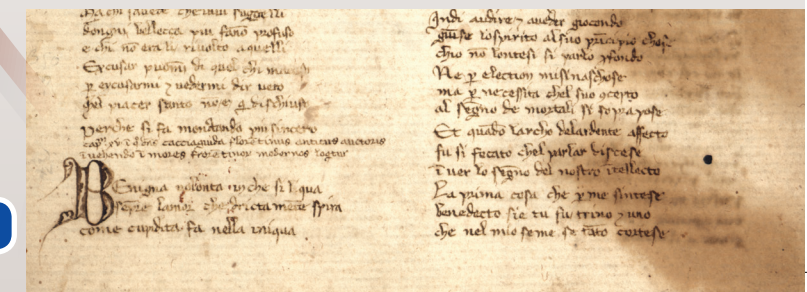 dongni bellecca piu fanno profuse
e chi nō era li rivolto a quelli
Excusar puomi di quel chi
p excusarmi z vedermi dir vero
chel piacer santo nō e q dischiuso
perche si fa montando piu sincero
cacciaguida florentinus anticus
modernos
Benigna volonta in che si liqua
sēpre lamor che dricta mēte spira
come cupidita fa nella iniqua
Indi audire z a veder giocondo
giūse lo spirito al suo pricipio chose
chio nō lontesi si parlo pfondo
Ne p election mi si naschose
ma p necessita chel suo cōcepto
al segno de mortali si sopra pose
Et quādo larcho de lardente affecto
fu si focato chel parlar discese
īver lo segno del nostro ītellecto
La prima cosa che p me sintese
benedecto sie tu fu trino z uno
che nel mio seme se tāto cortese